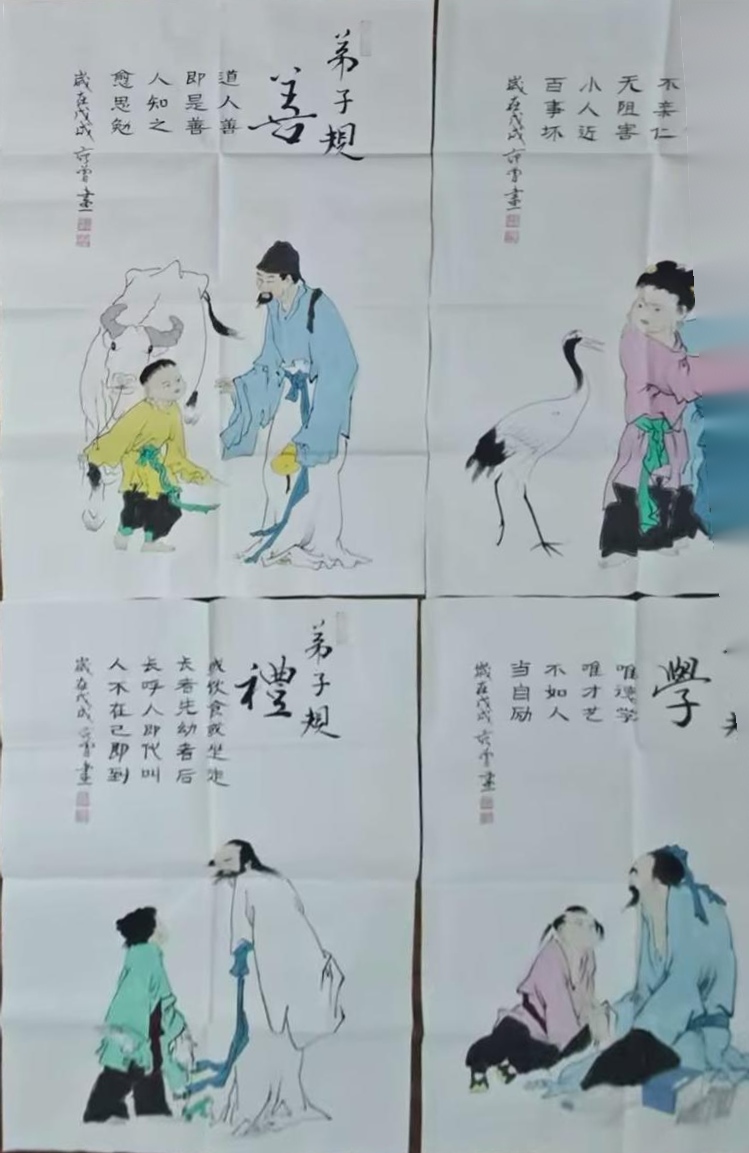 弟子規
善
道人善
即是善
人知之
愈思勉
歲在戊戌 范曾畫
不亲仁
无阻害
小人近
百事坏
歲在戊戌 范曾畫
弟子規
禮
或饮食或坐走
长者先幼者后
长呼人即代叫
人不在己即到
歲在戊戌 范曾畫
學
唯德学
唯才艺
不如人
当自励
歲在戊戌 范曾畫